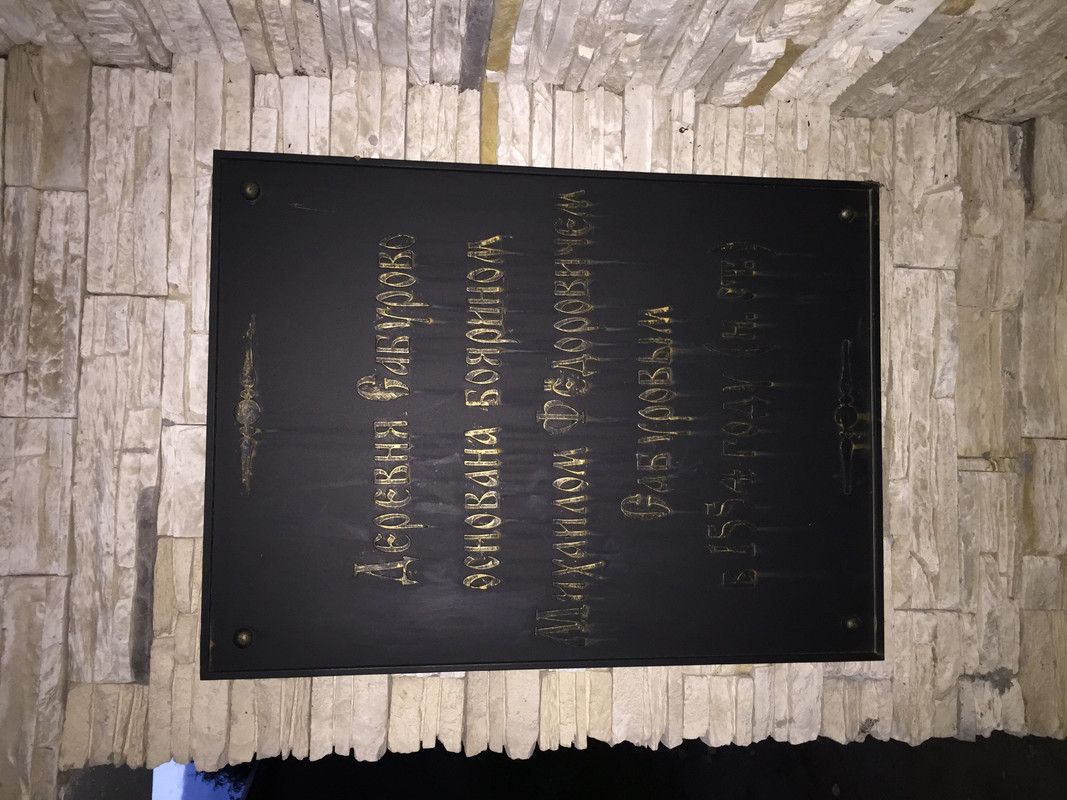 Деревня Сабурово
основана боярином
Михаилом Фёдоровичем
Сабуровым
в 1554 году